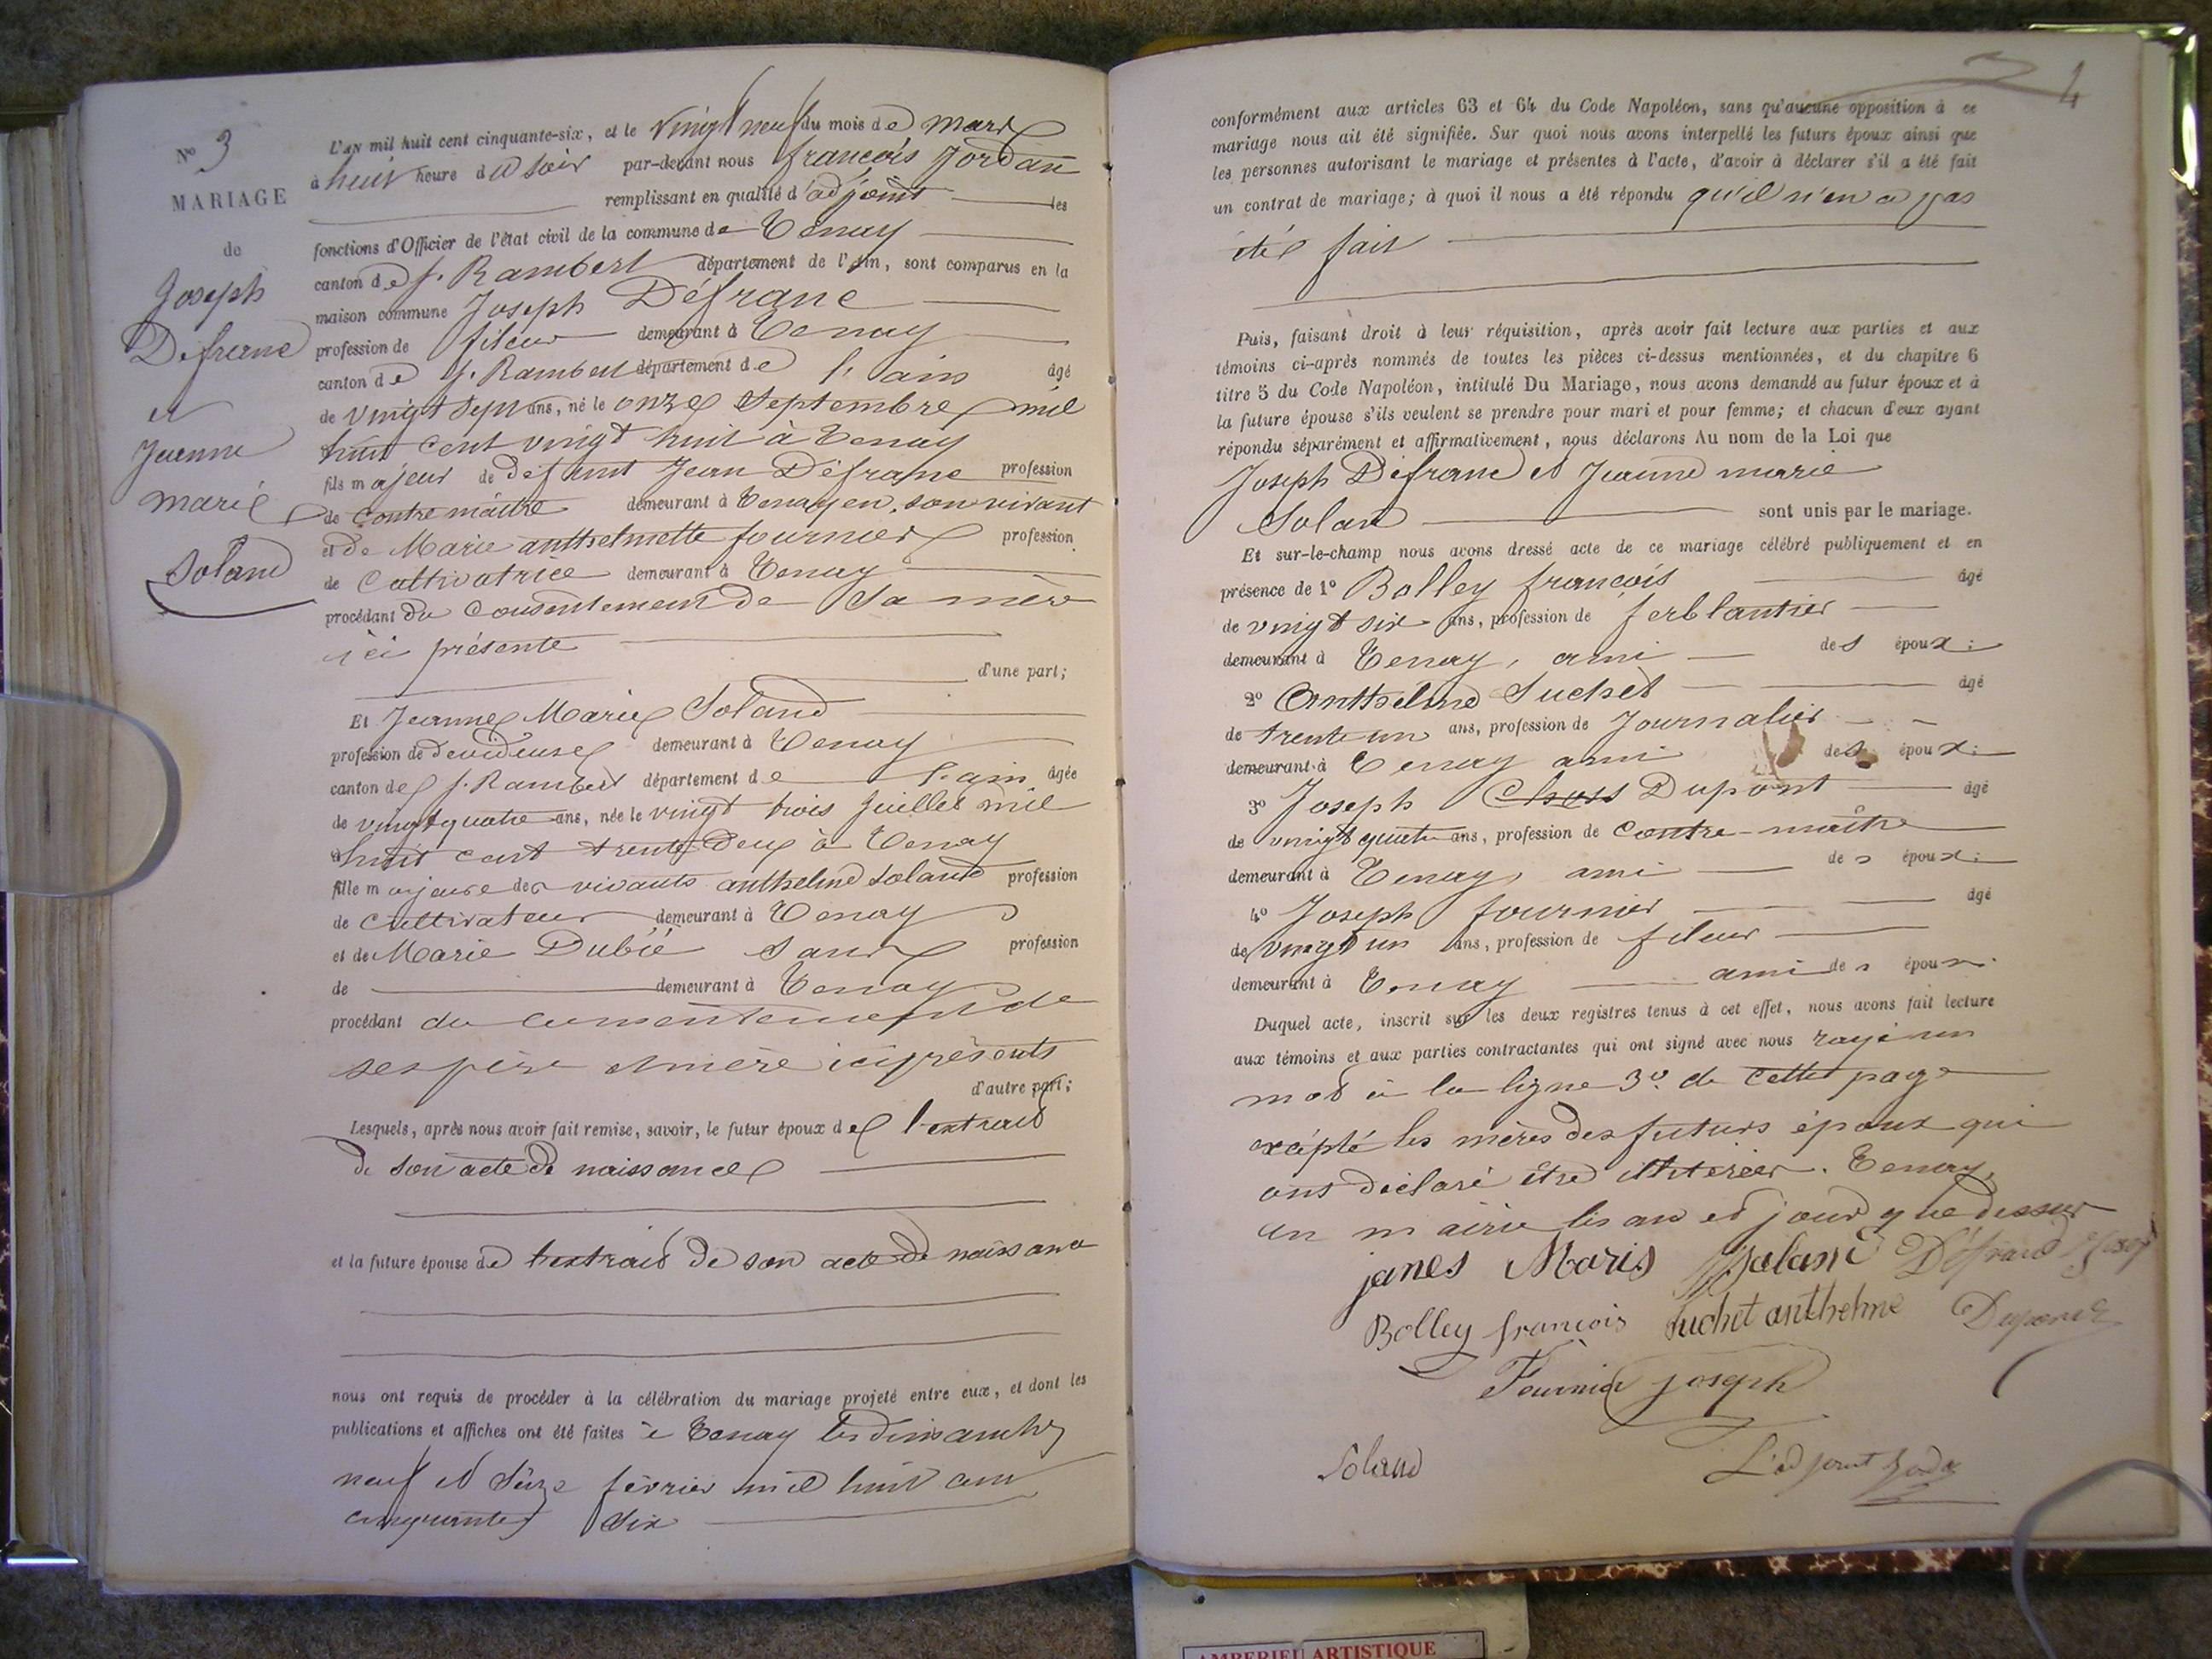 N° 3
MARIAGE
de
Joseph
Défranc
et
Jeanne
marie
Soland
L'AN mil huit cent cinquante-six, et le vingt neuf du mois de mars
à huit heure du soir par-devant nous françois Jordan
remplissant en qualité d'adjoint les
fonctions d'Officier de l'état civil de la commune de Tenay
canton de St. Rambert département de l'Ain, sont comparus en la
maison commune Joseph Défranc
profession de fileur demeurant à Tenay
canton de St. Rambert département de l'ain âgé
de vingt sept ans, né le onze Septembre mil
huit cent vingt huit à Tenay
fils majeur de défunt Jean Défranc profession
de contre maître demeurant à Tenay en son vivant
et de Marie anthelmette fournier profession
de Cultivatrice demeurant à Tenay
procédant du consentement de Sa mère
ici présente
d'une part;
Et Jeanne Marie Soland
profession de devideuse demeurant à Tenay
canton de St. Rambert département de l'ain âgée
de vingt quatre ans, née le vingt trois Juillet mil
huit cent trente deux à Tenay
fille majeure des vivants anthelme Soland profession
de Cultivateur demeurant à Tenay
et de Marie Dubié Sans profession
de demeurant à Tenay
procédant du consentement de
ses père et mère ici présents
d'autre part;
Lesquels, après nous avoir fait remise, savoir, le futur époux de l'extrait
de son acte de naissance
et la future épouse de l'extrait de son acte de naissance
nous ont requis de procéder à la célébration du mariage projeté entre eux, et dont les
publications et affiches ont été faites à Tenay les dimanches
neuf et seize février mil huit cent
cinquante six
4
conformément aux articles 63 et 64 du Code Napoléon, sans qu'aucune opposition à ce
mariage nous ait été signifiée. Sur quoi nous avons interpellé les futurs époux ainsi que
les personnes autorisant le mariage et présentes à l'acte, d'avoir à déclarer s'il a été fait
un contrat de mariage; à quoi il nous a été répondu qu'il n'en a pas
été fait
Puis, faisant droit à leur réquisition, après avoir fait lecture aux parties et aux
témoins ci-après nommés de toutes les pièces ci-dessus mentionnées, et du chapitre 6
titre 5 du Code Napoléon, intitulé Du Mariage, nous avons demandé au futur époux et à
la future épouse s'ils veulent se prendre pour mari et pour femme; et chacun d'eux ayant
répondu séparément et affirmativement, nous déclarons Au nom de la Loi que
Joseph Défranc et Jeanne marie
Solan sont unis par le mariage.
Et sur-le-champ nous avons dressé acte de ce mariage célébré publiquement et en
présence de 1° Bolley françois âgé
de vingt six ans, profession de ferblantier
demeurant à Tenay, ami des époux;
2° Anthelme Suchet âgé
de trente un ans, profession de Journalier
demeurant à Tenay ami des époux;
3° Joseph Dupont âgé
de vingt quatre ans, profession de Contre-maître
demeurant à Tenay, ami des époux;
4° Joseph fournier âgé
de vingt un ans, profession de fileur
demeurant à Tenay ami des époux.
Duquel acte, inscrit sur les deux registres tenus à cet effet, nous avons fait lecture
aux témoins et aux parties contractantes qui ont signé avec nous rayé un
mot à la ligne 3e. de cette page
excépté les mères des futurs époux qui
ont déclaré être . Tenay,
en mairie les an et jour que dessus
janes Maris Salani Défranc Josep
Bolley françois Suchet anthelme Dupont
Fournier joseph
Soland L'adjoint Jordan
AMBERIEU ARTISTIQUE